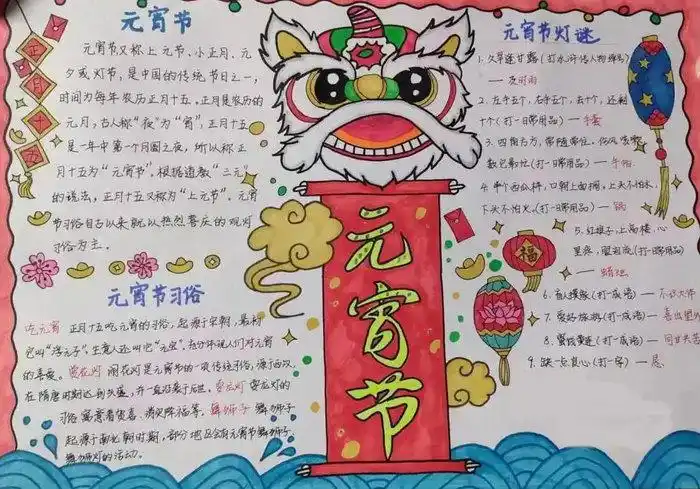 元宵节
元宵节又称上元节、小正月、元
夕或灯节,是中国的传统节日之一,
时间为每年农历正月十五,正月是农历的
元月,古人称“夜”为“宵”,正月十五
是一年中第一个月圆之夜,所以称正
月十五为“元宵节”。根据道教“三元”
的说法,正月十五又称为“上元节”。元宵
节习俗自古以来就以热烈喜庆的观灯
习俗为主。
正月十五
元宵节习俗
吃元宵 正月十五吃元宵的习俗,起源于宋朝,最初
它叫“浮元子”,生意人还叫它“元宝”,充分体现人们对元宵
的喜爱。赏花灯 闹花灯是元宵节的一项传统习俗,源于西汉,
在隋唐时期达到久盛,并一直沿袭于后世。
习俗寓意着贺喜、消灾降福等。舞狮子 舞狮子
起源于南北朝时期,部分地区会有元宵节舞狮子、
舞狮灯的活动。
元宵节
元宵节灯谜
1. 久旱逢甘露(打水浒传人物绰号)
— 及时雨
2. 左手五个,右手五个,去十个,还剩
十个(打一日常用品)— 手套
3. 四四方方,常随带你,伤风
(打一日常用品)— 手帕
4. 半个西瓜样,口朝上面搁,上头不怕水,
下头不怕火。(打一日常用品)— 锅
5. 红娘子,上高楼,心
里疼,眼泪流(打一日常用品)
— 蜡烛
福
6. 盲人摸象(打一成语)— 不识大体
7. 爱好旅游(打一成语)— 喜出望外
8. (打一成语)— 同甘共苦
9. 跌一点良心(打一字)— 恳